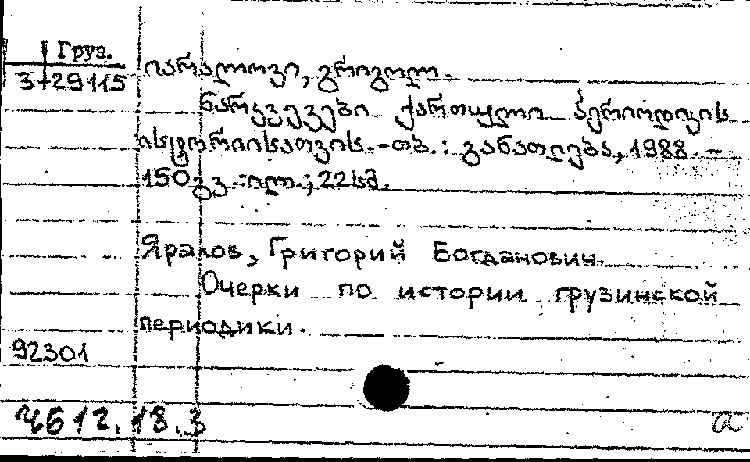 Груз.
3-29115
იარალოვი, გრიგოლ.
ნარკვევები ქართული პერიოდიკის
ისტორიისათვის. -თბ.: განათლება, 1988. -
150გვ.:ილ.; 22სმ.
Яралов, Григорий Богданович.
Очерки по истории грузинской
периодики.
92301
4612.18.3
a